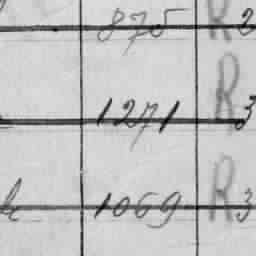 875 R 2
1271 R 3
1069 R 3